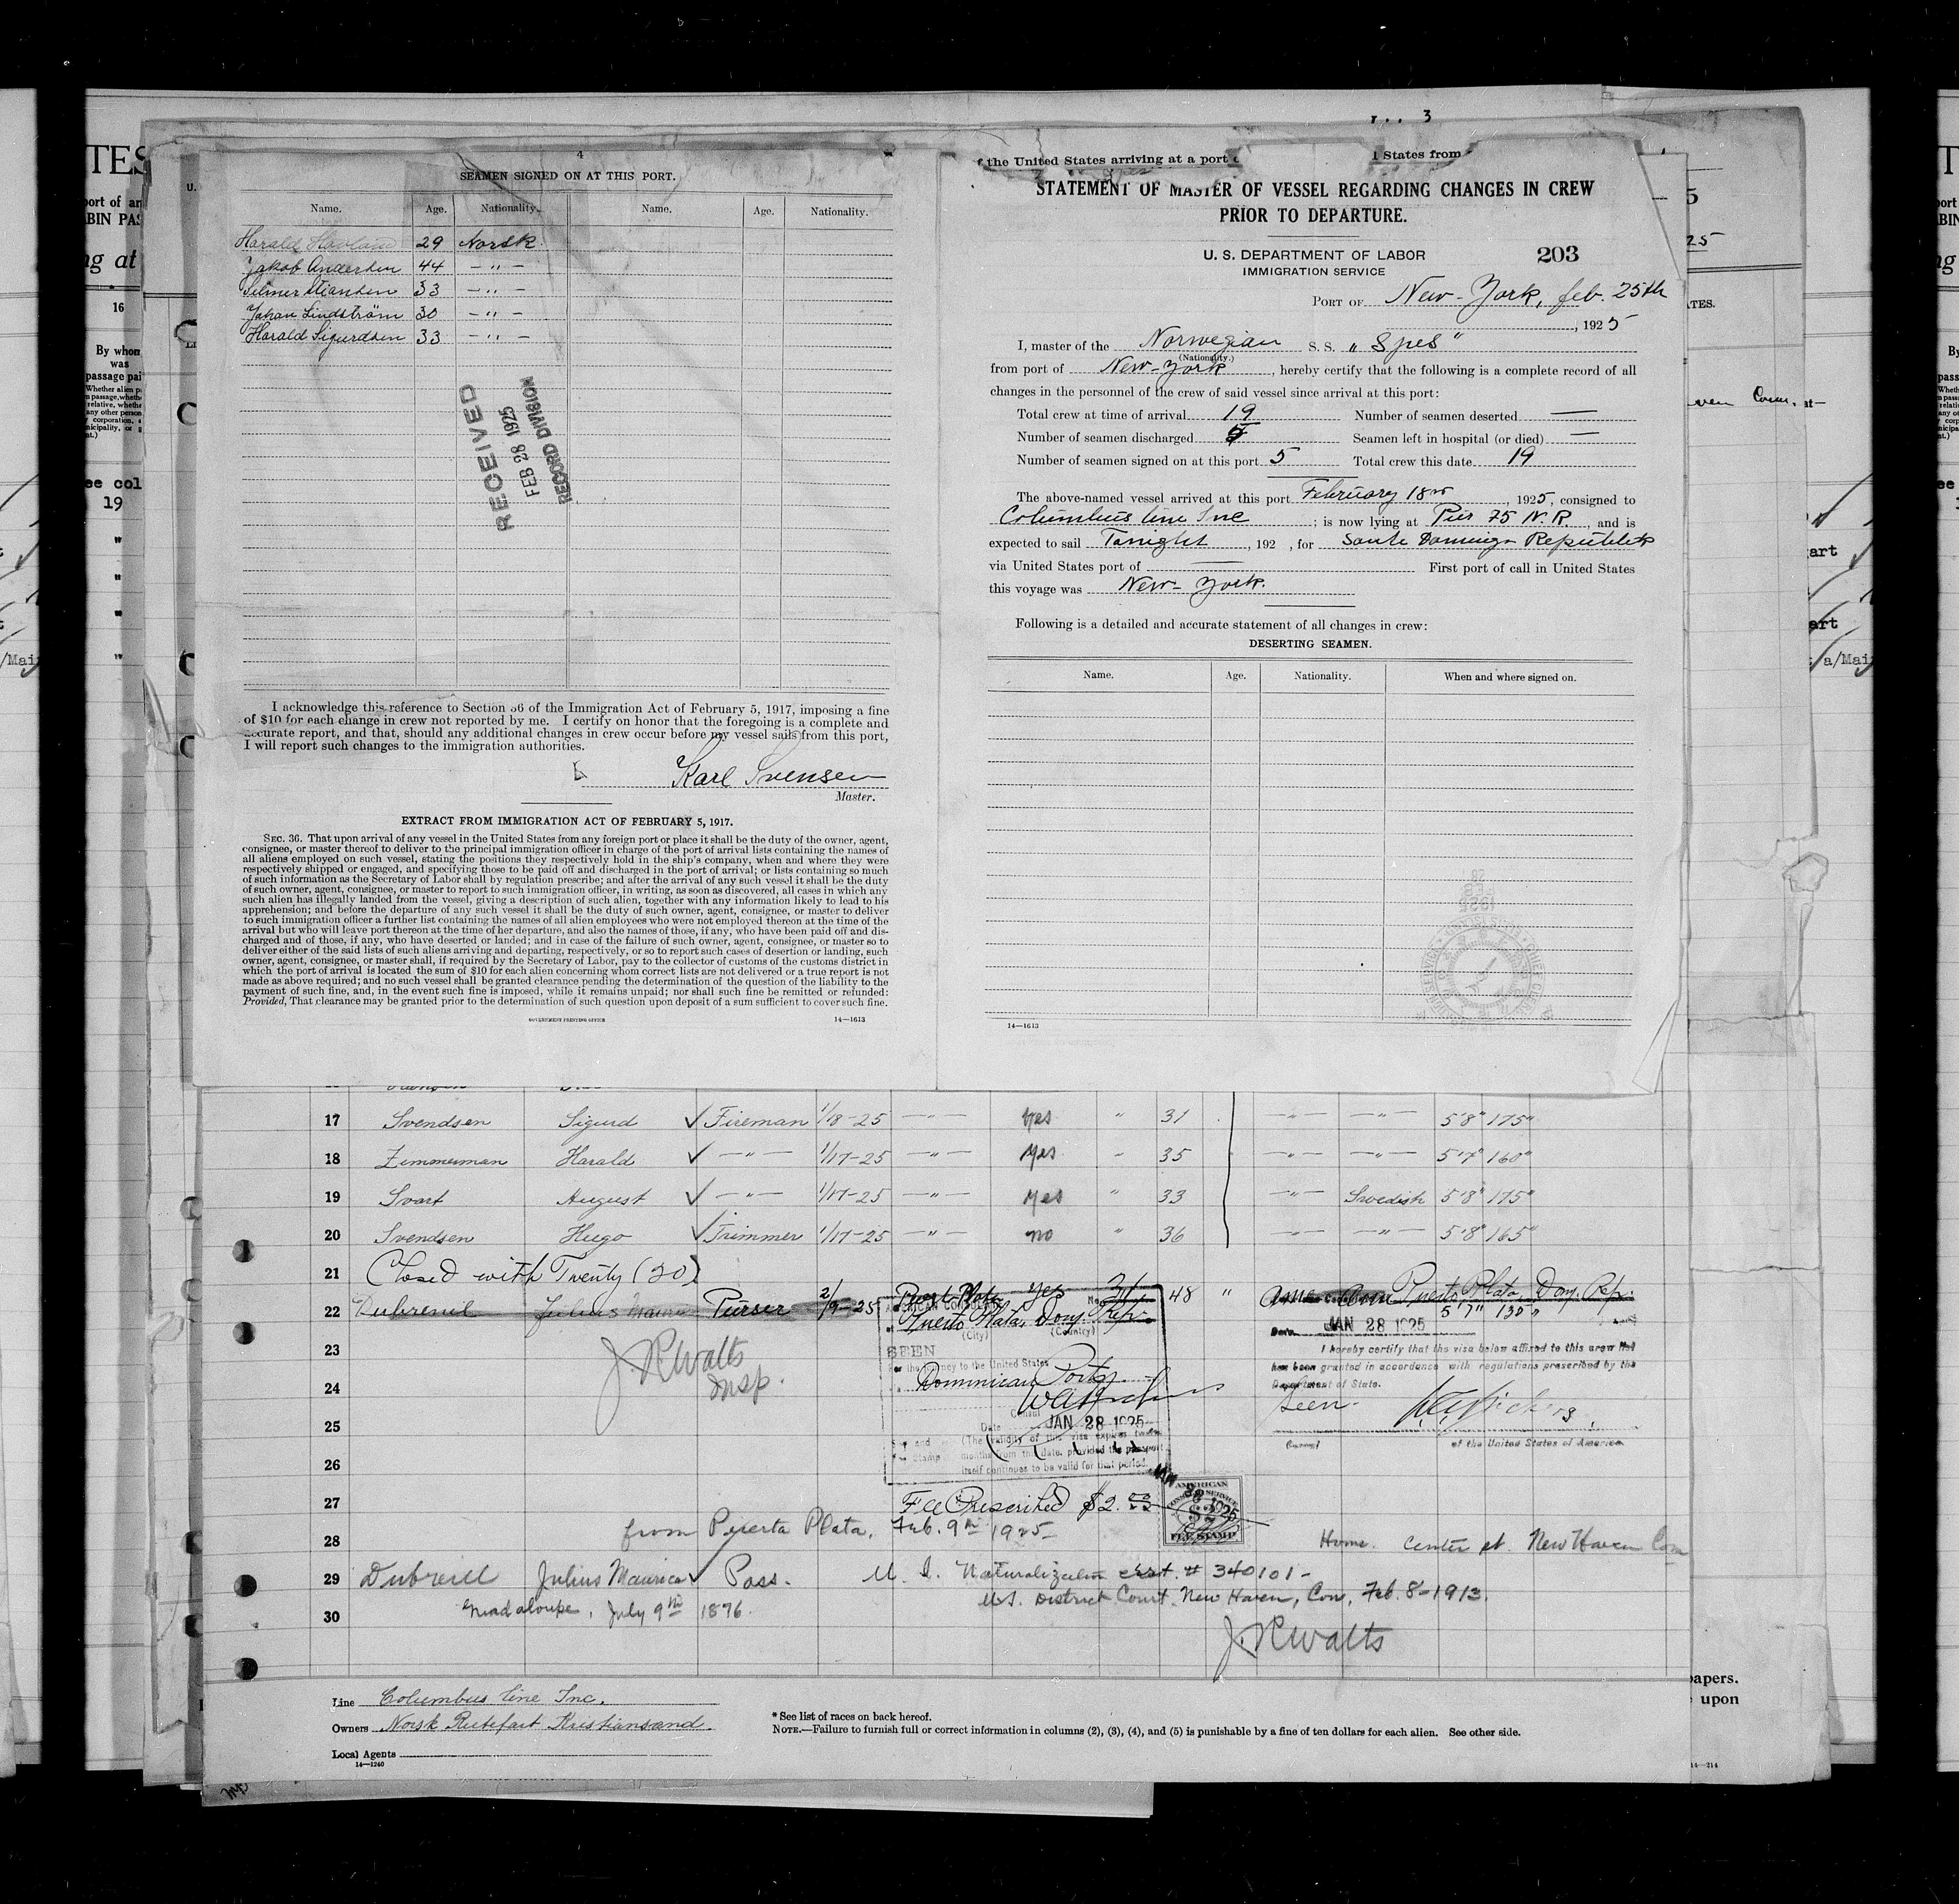 4
SEAMEN SIGNED ON AT THIS PORT.
Name. Age. Nationality. Name. Age. Nationality.
Harald 29 Norsk.
Jakob Andersen 44 — " —
33 — " —
Johan Lindström 30 — " —
Harald Sigurdsen 33 — " —
RECEIVED
FEB 28 1925
RECORD DIVISION
I acknowledge this reference to Section 36 of the Immigration Act of February 5, 1917, imposing a fine
of $10 for each change in crew not reported by me. I certify on honor that the foregoing is a complete and
accurate report, and that, should any additional changes in crew occur before my vessel sails from this port,
I will report such changes to the immigration authorities.
Karl Svensen
Master.
EXTRACT FROM IMMIGRATION ACT OF FEBRUARY 5, 1917.
SEC. 36. That upon arrival of any vessel in the United States from any foreign port or place it shall be the duty of the owner, agent,
consignee, or master thereof to deliver to the principal immigration officer in charge of the port of arrival lists containing the names of
all aliens employed on such vessel, stating the positions they respectively hold in the ship's company, when and where they were
respectively shipped or engaged, and specifying those to be paid off and discharged in the port of arrival; or lists containing so much
of such information as the Secretary of Labor shall by regulation prescribe; and after the arrival of any such vessel it shall be the duty
of such owner, agent, consignee, or master to report to such immigration officer, in writing, as soon as discovered, all cases in which any
such alien has illegally landed from the vessel, giving a description of such alien, together with any information likely to lead to his
apprehension; and before the departure of any such vessel it shall be the duty of such owner, agent, consignee, or master to deliver
to such immigration officer a further list containing the names of all alien employees who were not employed thereon at the time of the
arrival but who will leave port thereon at the time of her departure, and also the names of those, if any, who have been paid off and dis-
charged and of those, if any, who have deserted or landed; and in case of the failure of such owner, agent, consignee, or master so to
deliver either of the said lists of such aliens arriving and departing, respectively, or so to report such cases of desertion or landing, such
owner, agent, consignee, or master shall, if required by the Secretary of Labor, pay to the collector of customs of the customs district in
which the port of arrival is located the sum of $10 for each alien concerning whom correct lists are not delivered or a true report is not
made as above required; and no such vessel shall be granted clearance pending the determination of the question of the liability to the
payment of such fine, and, in the event such fine is imposed, while it remains unpaid; nor shall such fine be remitted or refunded:
Provided, That clearance may be granted prior to the determination of such question upon deposit of a sum sufficient to cover such fine.
GOVERNMENT PRINTING OFFICE 14—1613
3
the United States arriving at a port States from
STATEMENT OF MASTER OF VESSEL REGARDING CHANGES IN CREW
PRIOR TO DEPARTURE.
U. S. DEPARTMENT OF LABOR 203
IMMIGRATION SERVICE
PORT OF New-York, feb. 25th
, 1925
I, master of the Norwegian S. S. "Spes"
(Nationality.)
from port of New-York, hereby certify that the following is a complete record of all
changes in the personnel of the crew of said vessel since arrival at this port:
Total crew at time of arrival 19 Number of seamen deserted —
Number of seamen discharged 5 Seamen left in hospital (or died) —
Number of seamen signed on at this port 5 Total crew this date 19
The above-named vessel arrived at this port February 18, 1925, consigned to
Columbus line Inc; is now lying at Pier 75 N.R., and is
expected to sail Tonight, 192 , for Santo Domingo
via United States port of — First port of call in United States
this voyage was New-York.
Following is a detailed and accurate statement of all changes in crew:
DESERTING SEAMEN.
Name. Age. Nationality. When and where signed on.
14—1613
17 Svendsen Sigurd ✓ Fireman 1/18-25 — " — yes " 31 — " — — " — 5'8" 175"
18 Zimmerman Harald ✓ — " — 1/17-25 — " — yes " 35 — " — — " — 5'7" 160"
19 Svart August ✓ — " — 1/17-25 — " — yes " 33 — " — Swedish 5'8" 175"
20 Svendsen Hugo ✓ Trimmer 1/17-25 — " — no " 36 — " — — " — 5'8" 165"
21 Closed with Twenty (20)
22 Dubreuil Julius Purser 2/9-25 yes 48 " Puerto Plata, Dom. Rep.
Puerto Plata, Dom. Rep. 5'7" 130"
(City) (Country)
JAN 28 1925
23 J R Watts SEEN I hereby certify that the visa below affixed to this crew list
Insp. For the journey to the United States has been granted in accordance with regulations prescribed by the
Department of State.
24 Dominican Ports. Seen
Date JAN 28 1925
25 (The validity of this visa expires twelve of the United States of America
months from this date, provided the passport
26 itself continues to be valid for that period.
27 Fee Prescribed $2.00
AMERICAN CONSULAR SERVICE $2 FEE STAMP
28 from Puerta Plata, Feb. 9th 1925 Home. Center st. New Haven Con
29 Dubreuil Julius Maurice ✓ Pass. U. S. Naturalization cert. # 340101-
U.S. District Court New Haven, Con, Feb. 8-1913.
30 Guadaloupe, July 9th 1876.
J. R Watts
Line Columbus line Inc.
Owners Norsk Rutefart Kristiansand.
Local Agents
14—1240
* See list of races on back hereof.
NOTE.—Failure to furnish full or correct information in columns (2), (3), (4), and (5) is punishable by a fine of ten dollars for each alien. See other side.
papers.
upon
14—214